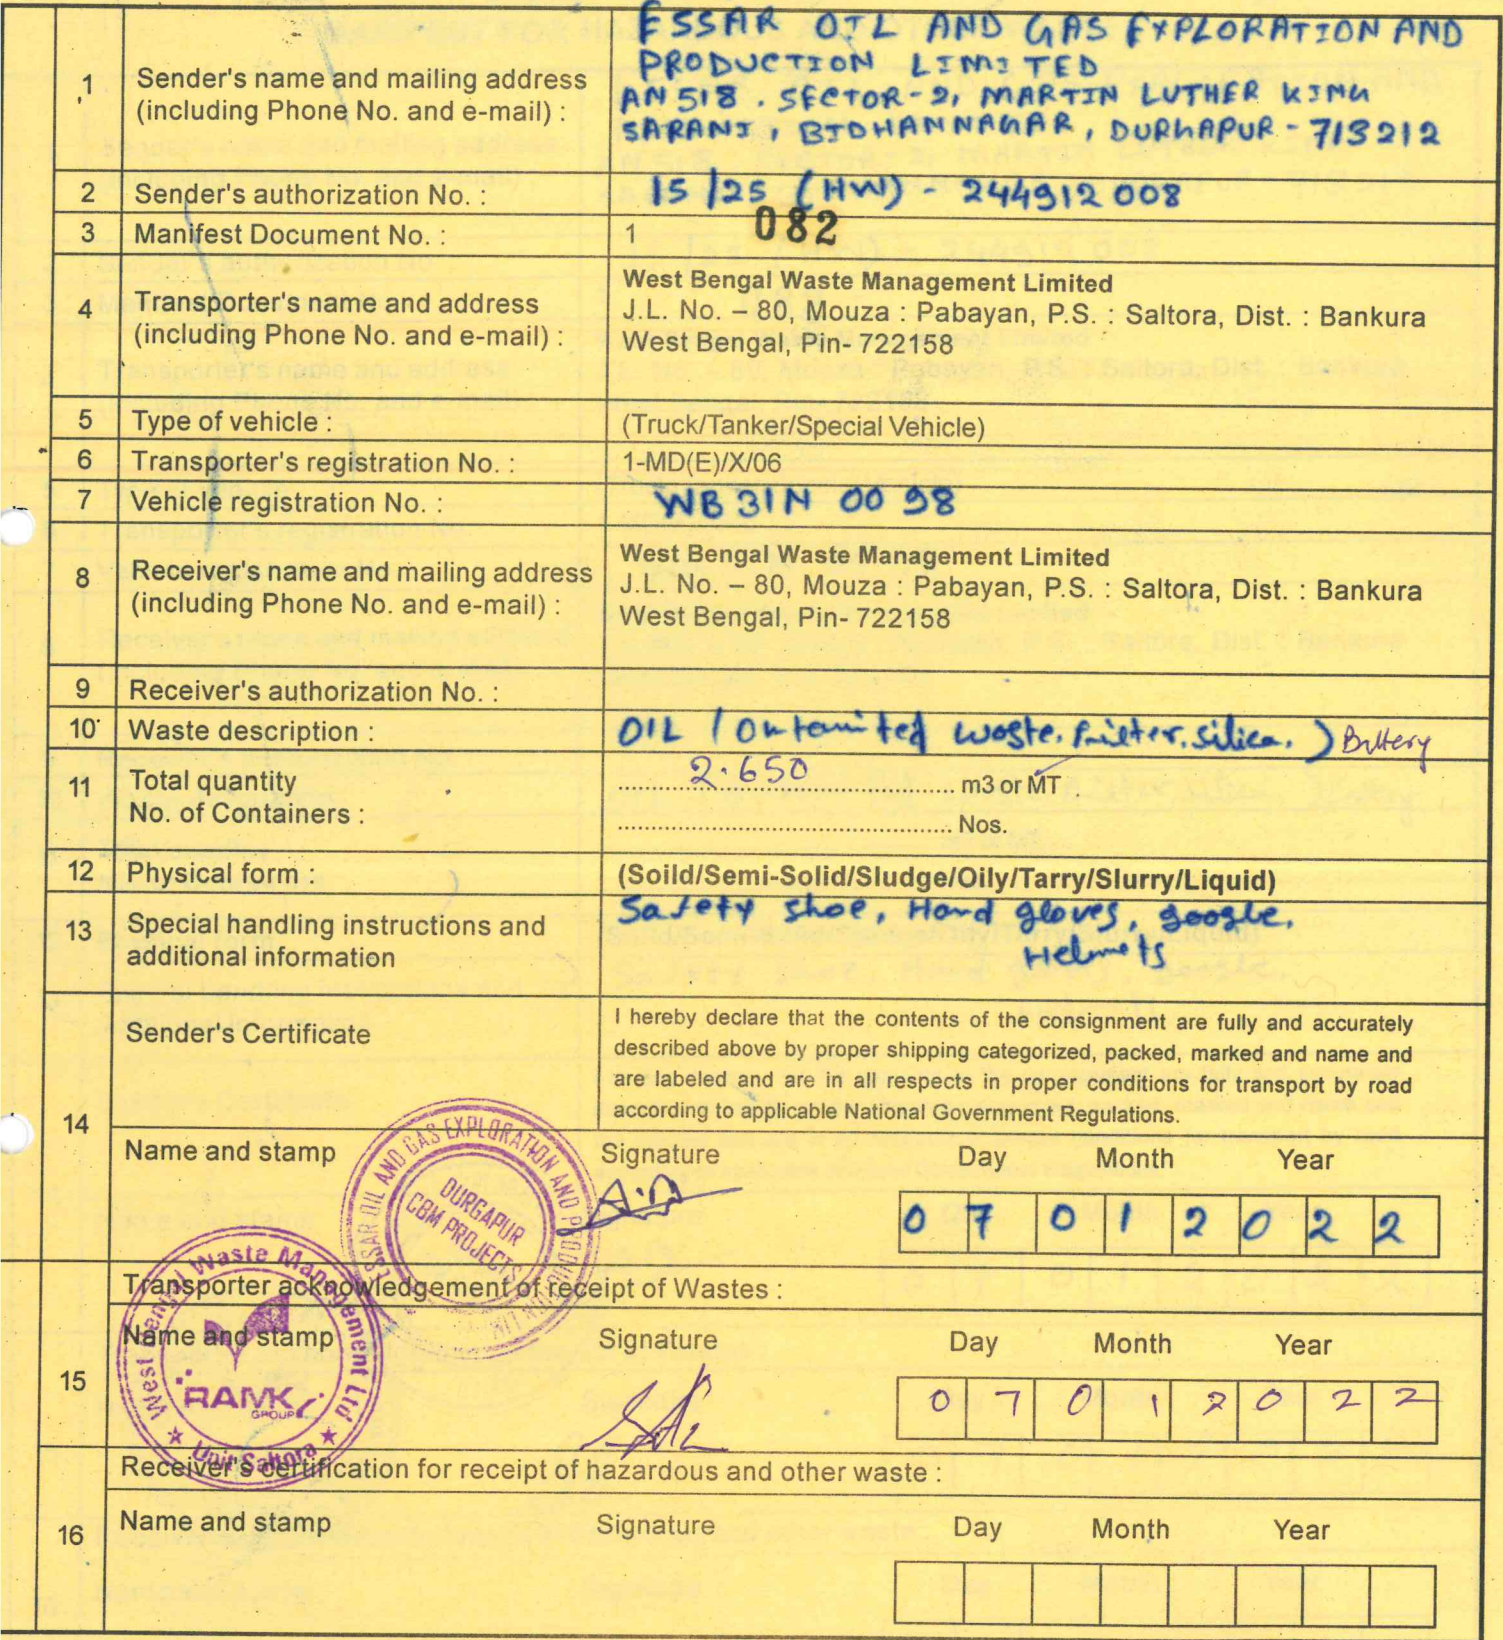 1 Sender's name and mailing address (including Phone No. and e-mail) :
ESSAR OIL AND GAS EXPLORATION AND
PRODUCTION LIMITED
AN 518 . SECTOR-2, MARTIN LUTHER KING
SARANI, BIDHANNAGAR, DURGAPUR - 713212
2 Sender's authorization No. : 15/25 (HW) - 244912008
3 Manifest Document No. : 1 082
4 Transporter's name and address (including Phone No. and e-mail) :
West Bengal Waste Management Limited
J.L. No. – 80, Mouza : Pabayan, P.S. : Saltora, Dist. : Bankura
West Bengal, Pin- 722158
5 Type of vehicle : (Truck/Tanker/Special Vehicle)
6 Transporter's registration No. : 1-MD(E)/X/06
7 Vehicle registration No. : WB 31N 0098
8 Receiver's name and mailing address (including Phone No. and e-mail) :
West Bengal Waste Management Limited
J.L. No. – 80, Mouza : Pabayan, P.S. : Saltora, Dist. : Bankura
West Bengal, Pin- 722158
9 Receiver's authorization No. :
10 Waste description : OIL (Ontamited waste. filter. silica.) Battery
11 Total quantity 2.650 m3 or MT .
No. of Containers : Nos.
12 Physical form : (Soild/Semi-Solid/Sludge/Oily/Tarry/Slurry/Liquid)
13 Special handling instructions and additional information
Safety shoe, Hand gloves, google,
Helmets
14 Sender's Certificate
I hereby declare that the contents of the consignment are fully and accurately
described above by proper shipping categorized, packed, marked and name and
are labeled and are in all respects in proper conditions for transport by road
according to applicable National Government Regulations.
Name and stamp Signature Day Month Year
0 7 0 1 2 0 2 2
ESSAR OIL AND GAS EXPLORATION AND PRODUCTION LIM
DURGAPUR
CBM PROJECTS
Transporter acknowledgement of receipt of Wastes :
15 Name and stamp Signature Day Month Year
0 7 0 1 2 0 2 2
West Bengal Waste Management Ltd
RAMKY
GROUP
Unit Saltora
Receiver's certification for receipt of hazardous and other waste :
16 Name and stamp Signature Day Month Year